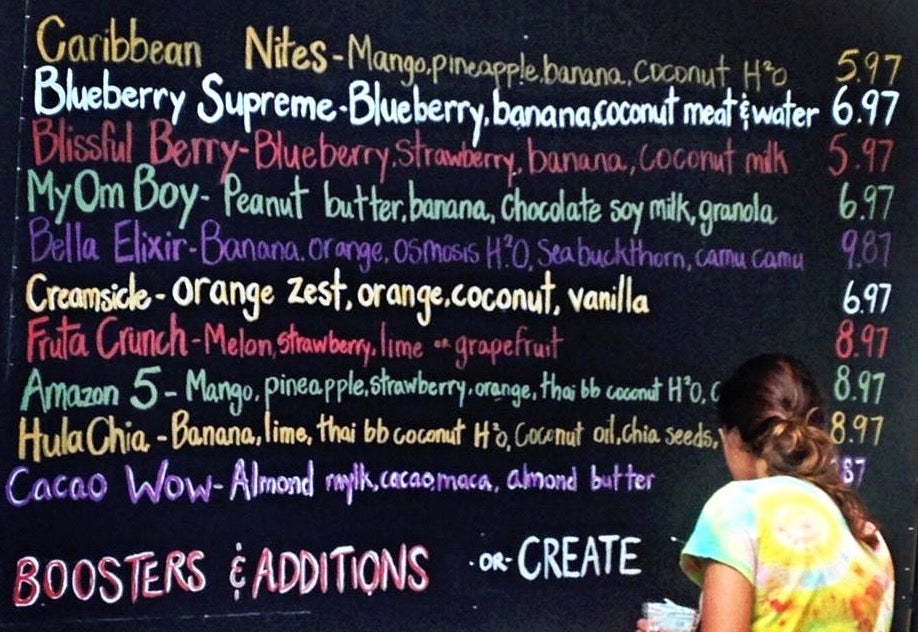 Caribbean Nites - Mango, pineapple, banana, Coconut H²O 5.97
Blueberry Supreme - Blueberry, banana, coconut meat & water 6.97
Blissful Berry - Blueberry, Strawberry, banana, Coconut milk 5.97
My Om Boy - Peanut butter, banana, Chocolate soy milk, granola 6.97
Bella Elixir - Banana, orange, Osmosis H²O, Seabuckthorn, camu camu 9.87
Creamsicle - orange zest, orange, coconut, vanilla 6.97
Fruta Crunch - Melon, strawberry, lime or grapefruit 8.97
Amazon 5 - Mango, pineapple, strawberry, orange, thai bb coconut H²O, 8.97
Hula Chia - Banana, lime, thai bb coconut H²O, Coconut oil, chia seeds, 8.97
Cacao Wow - Almond mylk, cacao, maca, almond butter 87
BOOSTERS & ADDITIONS - OR - CREATE